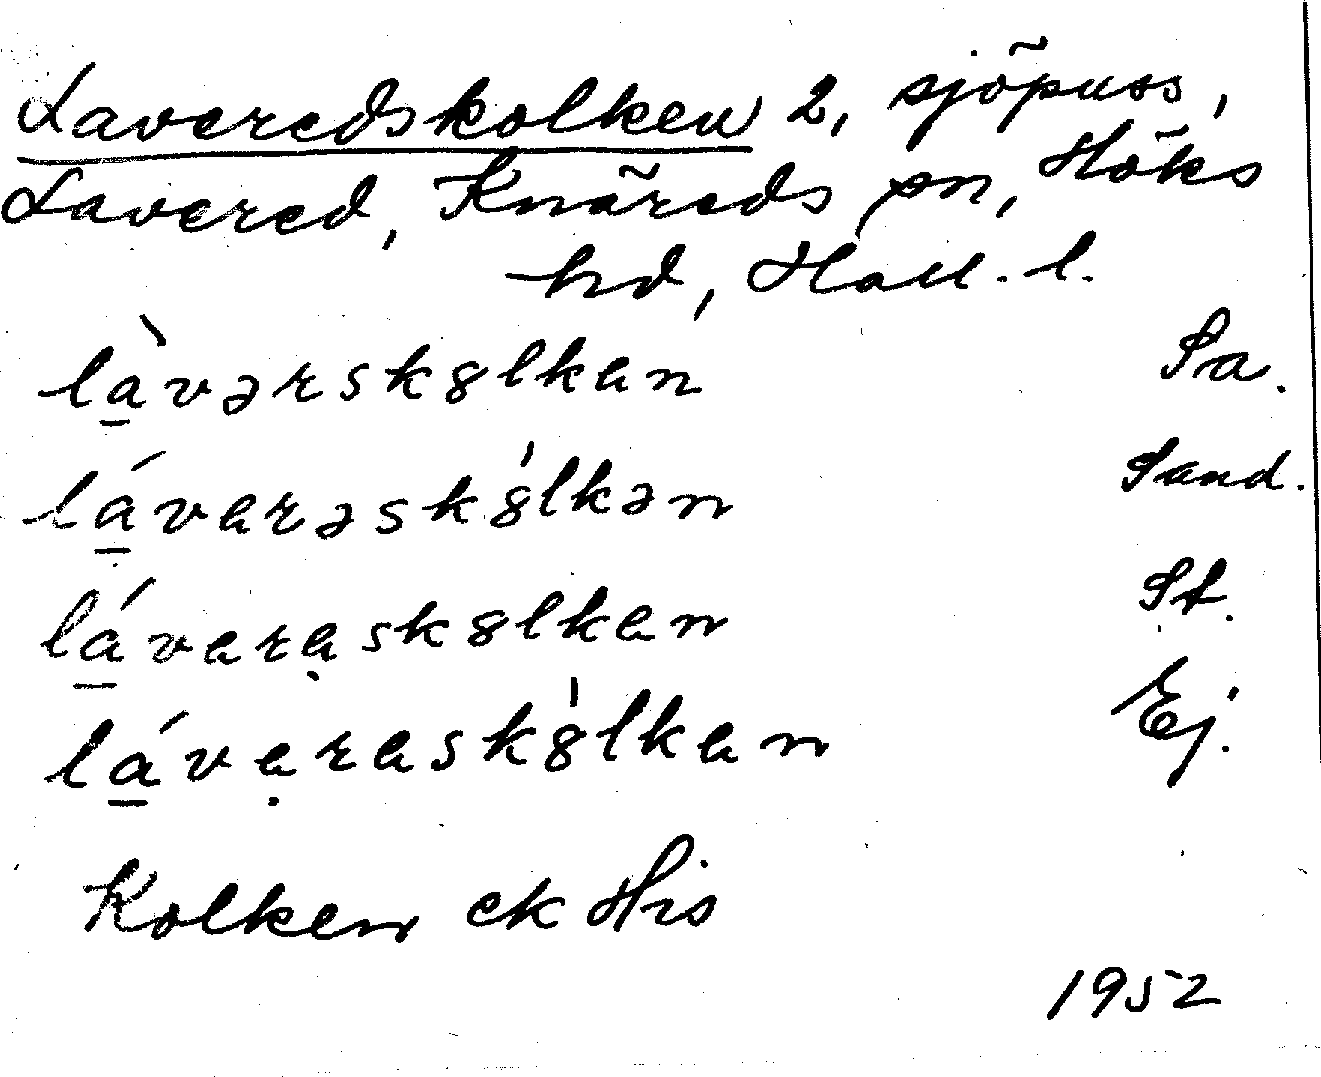 Laveredskolken 2, sjöpuss,
Lavered, Knäreds sn, Höks
hd, Hall. l.
là̱vərskȣlkən Sa.
lá̱varəskȣ̍lkən Sand.
lá̱varạskȣlkan St.
lá̱vạraskȣ̍lkan Ej.
Kolken ek His
1952